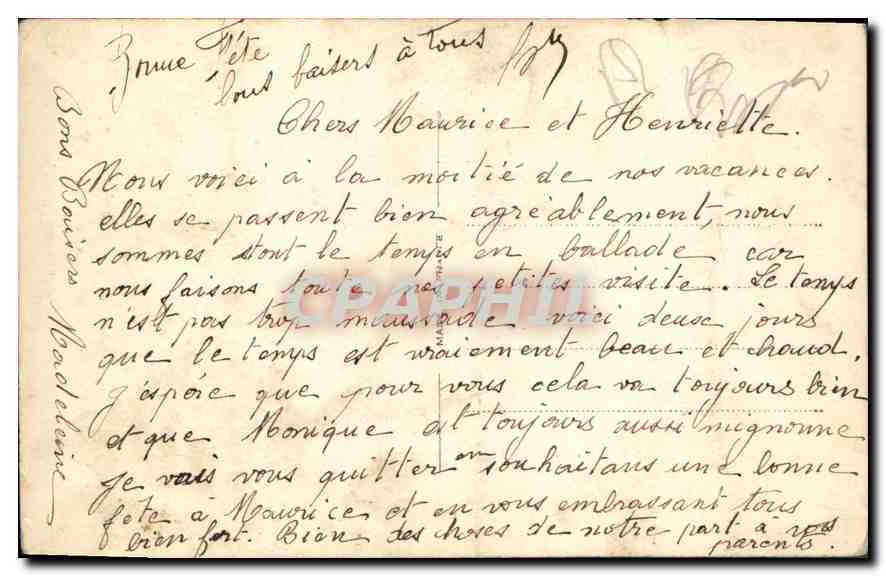 Bonne Fête
bons baisers à tous
Chers Maurice et Henriette.
Nous voici à la moitié de nos vacances.
elles se passent bien agréablement, nous
sommes tout le temps en ballade car
nous faisons toute nos petites visite. Le temps
n'est pas trop maussade voici deux jours
que le temps est vraiement beau et chaud.
j'éspère que pour vous cela va toujours bien
et que Monique est toujours aussi mignonne
je vais vous quitter en souhaitans une bonne
fete à Maurice et en vous embrassant tous
bien fort. Bien des choses de notre part à vos
parents.
Bons Baisers Madeleine
CPAPHIL